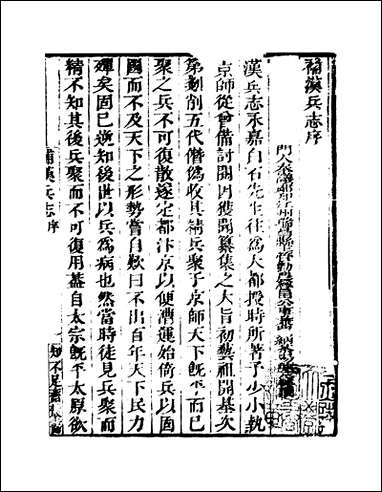 補漢兵志序
漢兵志永嘉白石先生往為太都授時所著予少小執
京師從曾備討閱因獲聞纂集之大旨初藝祖開基次
第剗削五代僭偽收其精兵聚于京師天下既平而已
聚之兵不可復散遂定都汴京以便漕運始倚兵以固
國而不及天下之形勢嘗自歎曰不出百年天下民力
殫矣固已逆知後世以兵為病也然當時徒見兵聚而
精不知其後兵聚而不可復用蓋自太宗既平太原欲
補漢兵志序
知不足齋